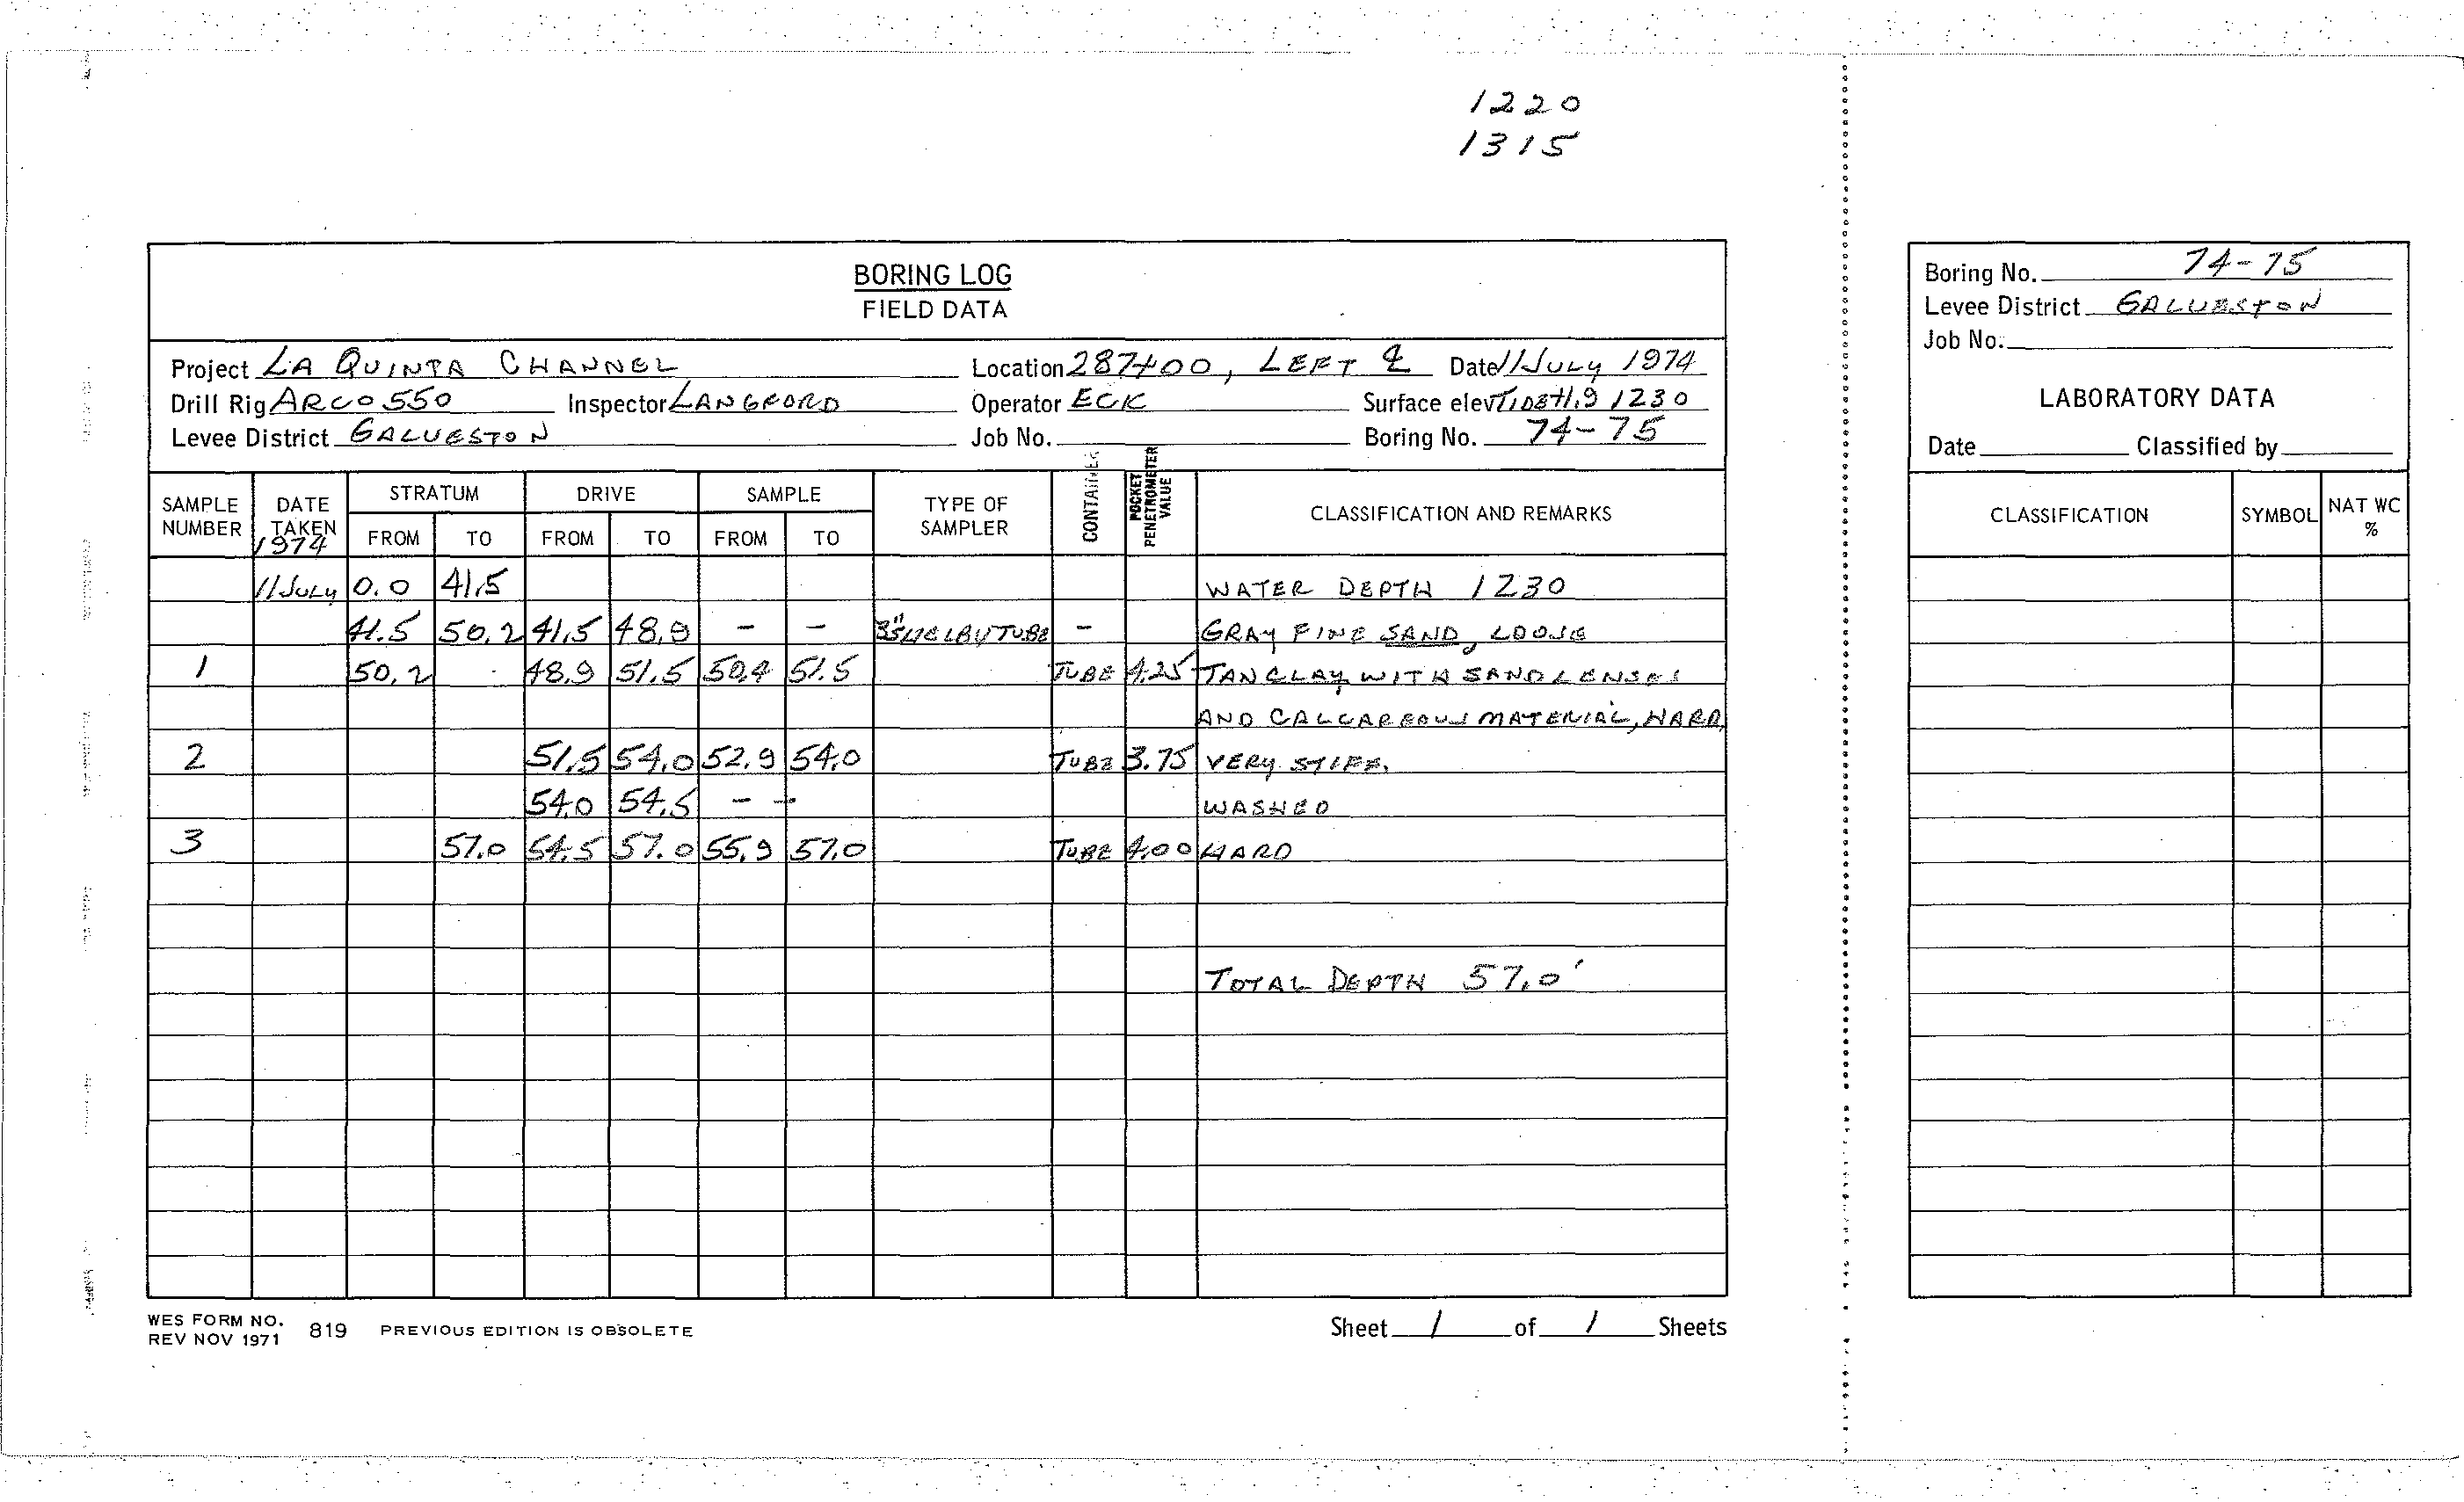 1220
1315
BORING LOG
FIELD DATA
Project LA QUINTA CHANNEL Location 287+00, LEFT ℄ Date 11 JULY 1974
Drill Rig ARCO 550 Inspector LANGFORD Operator ECK Surface elev TIDE +1.9 1230
Levee District GALVESTON Job No. Boring No. 74-75
SAMPLE NUMBER DATE TAKEN 1974 STRATUM FROM TO DRIVE FROM TO SAMPLE FROM TO TYPE OF SAMPLER CONTAINER POCKET PENETROMETER VALUE CLASSIFICATION AND REMARKS
11 JULY 0.0 41.5 WATER DEPTH 1230
41.5 50.2 41.5 48.9 - - 3" SHELBY TUBE - GRAY FINE SAND, LOOSE
1 50.2 48.9 51.5 50.4 51.5 TUBE 4.25 TAN CLAY WITH SAND LENSES
AND CALCAREOUS MATERIAL, HARD
2 51.5 54.0 52.9 54.0 TUBE 3.75 VERY STIFF.
54.0 54.5 - - WASHED
3 57.0 54.5 57.0 55.9 57.0 TUBE 4.00 HARD
TOTAL DEPTH 57.0'
WES FORM NO. 819 PREVIOUS EDITION IS OBSOLETE
REV NOV 1971
Sheet 1 of 1 Sheets
Boring No. 74-75
Levee District GALVESTON
Job No.
LABORATORY DATA
Date Classified by
CLASSIFICATION SYMBOL NAT WC %